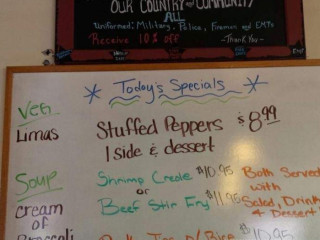 OUR COUNTRY and COMMUNITY
ALL
Uniformed: Military, Police, Firemen and EMTs
Receive 10% off -Thank You-
Today's Specials
Veg
Limas
Stuffed Peppers $8.99
1 side & dessert
Soup
Cream of
Broccoli
Shrimp Creole $10.95
or
Beef Stir Fry $11.95
Both Served
with
Salad, Drink
& Dessert
Tips w/ Rice $10.95